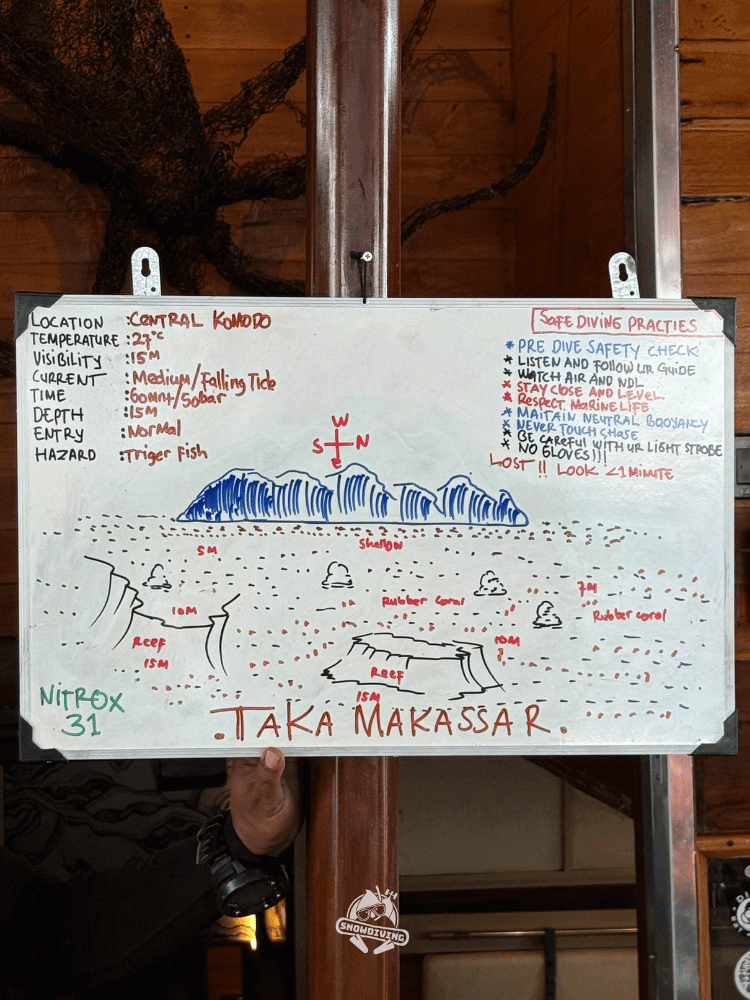 LOCATION :CENTRAL KOMODO
TEMPERATURE :27°C
VISIBILITY :15M
CURRENT :Medium/Falling Tide
TIME :60mnt/50bar
DEPTH :15M
ENTRY :Normal
HAZARD :Triger Fish
SAFE DIVING PRACTIES
* PRE DIVE SAFETY CHECK
* LISTEN AND FOLLOW UR GUIDE
* WATCH AIR AND NDL
* STAY CLOSE AND LEVEL
* RESPECT MARINE LIFE
* MAITAIN NEUTRAL BUOYANCY
* NEVER TOUCH CHASE
* BE CAREFUL WITH UR LIGHT STROBE
* NO GLOVES!!!
LOST !! LOOK <1 MINUTE
W
S N
E
5M Shallow
7M
Rubber coral
Rubber coral
10M
10M
Reef
15M
Reef
15M
NITROX
31
.TAKA MAKASSAR.
SNOWDIVING